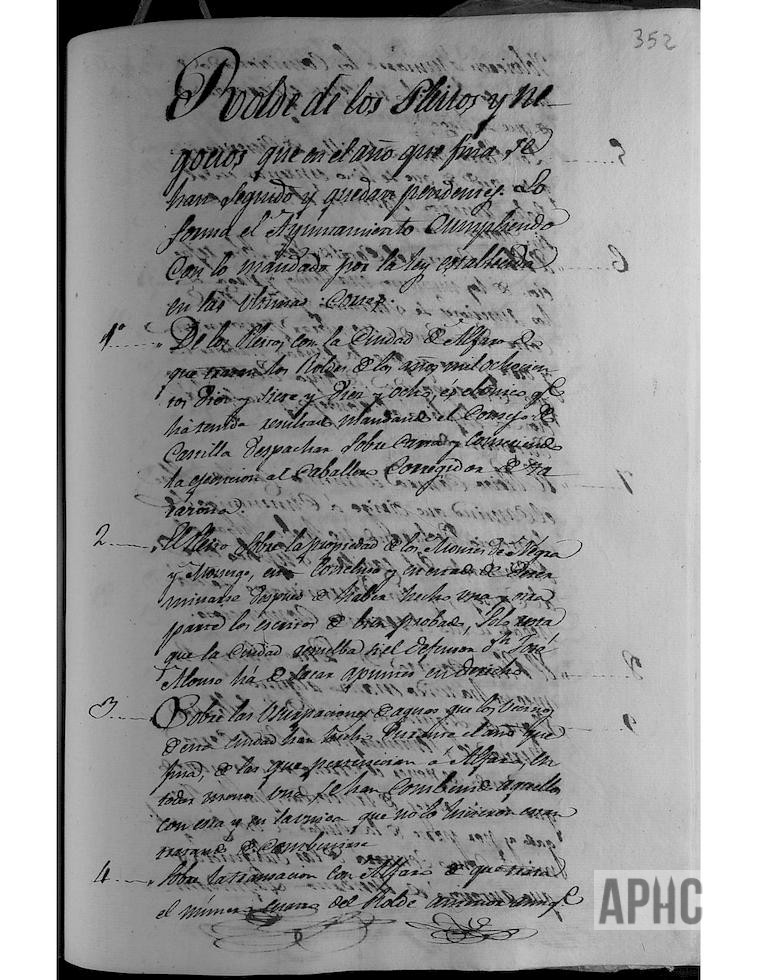 352
Rolde de los Pleitos y ne
gocios que en el año que fina, se
han seguido y quedan pendientes. Lo
forma el Ayuntamiento Cumpliendo
Con lo mandado por la ley establecida
en las ultimas Cortes.
1º De los Pleitos con la Ciudad de Alfaro de
que tratan los Roldes de los años mil ochocien
tos diez y siete y diez y ocho, es el unico qe
ha tenido resultado mandando el Consejo de
Castilla despachar sobre Carta y Cometiendo
la ejecucion al Caballero Corregidor de Ta
razona.
2 El Pleito sobre la propiedad de los Montes de
y está y en estado de Deter
minarse despues de haber hecho una y otra
parte los escritos de bien probado, Solo resta
que la Ciudad resuelba si el defensor Dn José
Alonso há de sacar apuntes en derecho
3 Sobre las Usurpaciones de aguas que los Vecinos
de esta Ciudad han hecho Durante el año que
fina, de las que pertenecian á Alfaro, en
todas menos una se han Combenido aquellos
con esta y en la unica que no lo hicieron estan
tratando de Combenirse
4 Sobre la transacion con Alfaro de que trata
el número del Rolde anterior aunqe
5
6
7
8
9
APHC